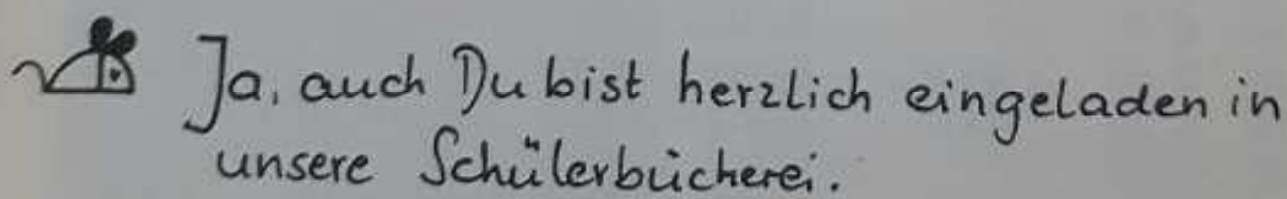 Ja, auch Du bist herzlich eingeladen in
unsere Schülerbücherei.